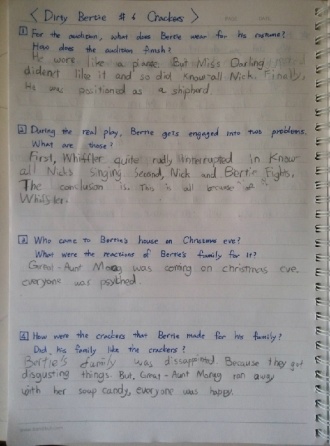 < Dirty Bertie # 6 Crackers >
1 For the audition, what does Bertie wear for his costume?
How does the audition finish?
He wore like a pirate. But Miss Darling
didenot like it and so did Know-all Nick. Finally,
He are positioned as a shiphard.
2 During the real play, Bertie gets engaged into two problems.
What are those?
First, Whiffler quite rudly interrupted in Know
all Nick's singing Second, Nick and Bertie Fights.
The conclusion is. This is all because of
Whiffler.
3 Who came to Bertie's house on Christmas eve?
What were the reactions of Bertie's family for it?
Great-Aunt Morag was coming on christmas eve.
everyone was
4 How were the crackers that Bertie made for his family?
Did his family like the crackers?
Bertie's family was disappointed. Because they got
disgusting things. But, Great-Aunt Morag ran away
with her soap candy, everyone was happy.